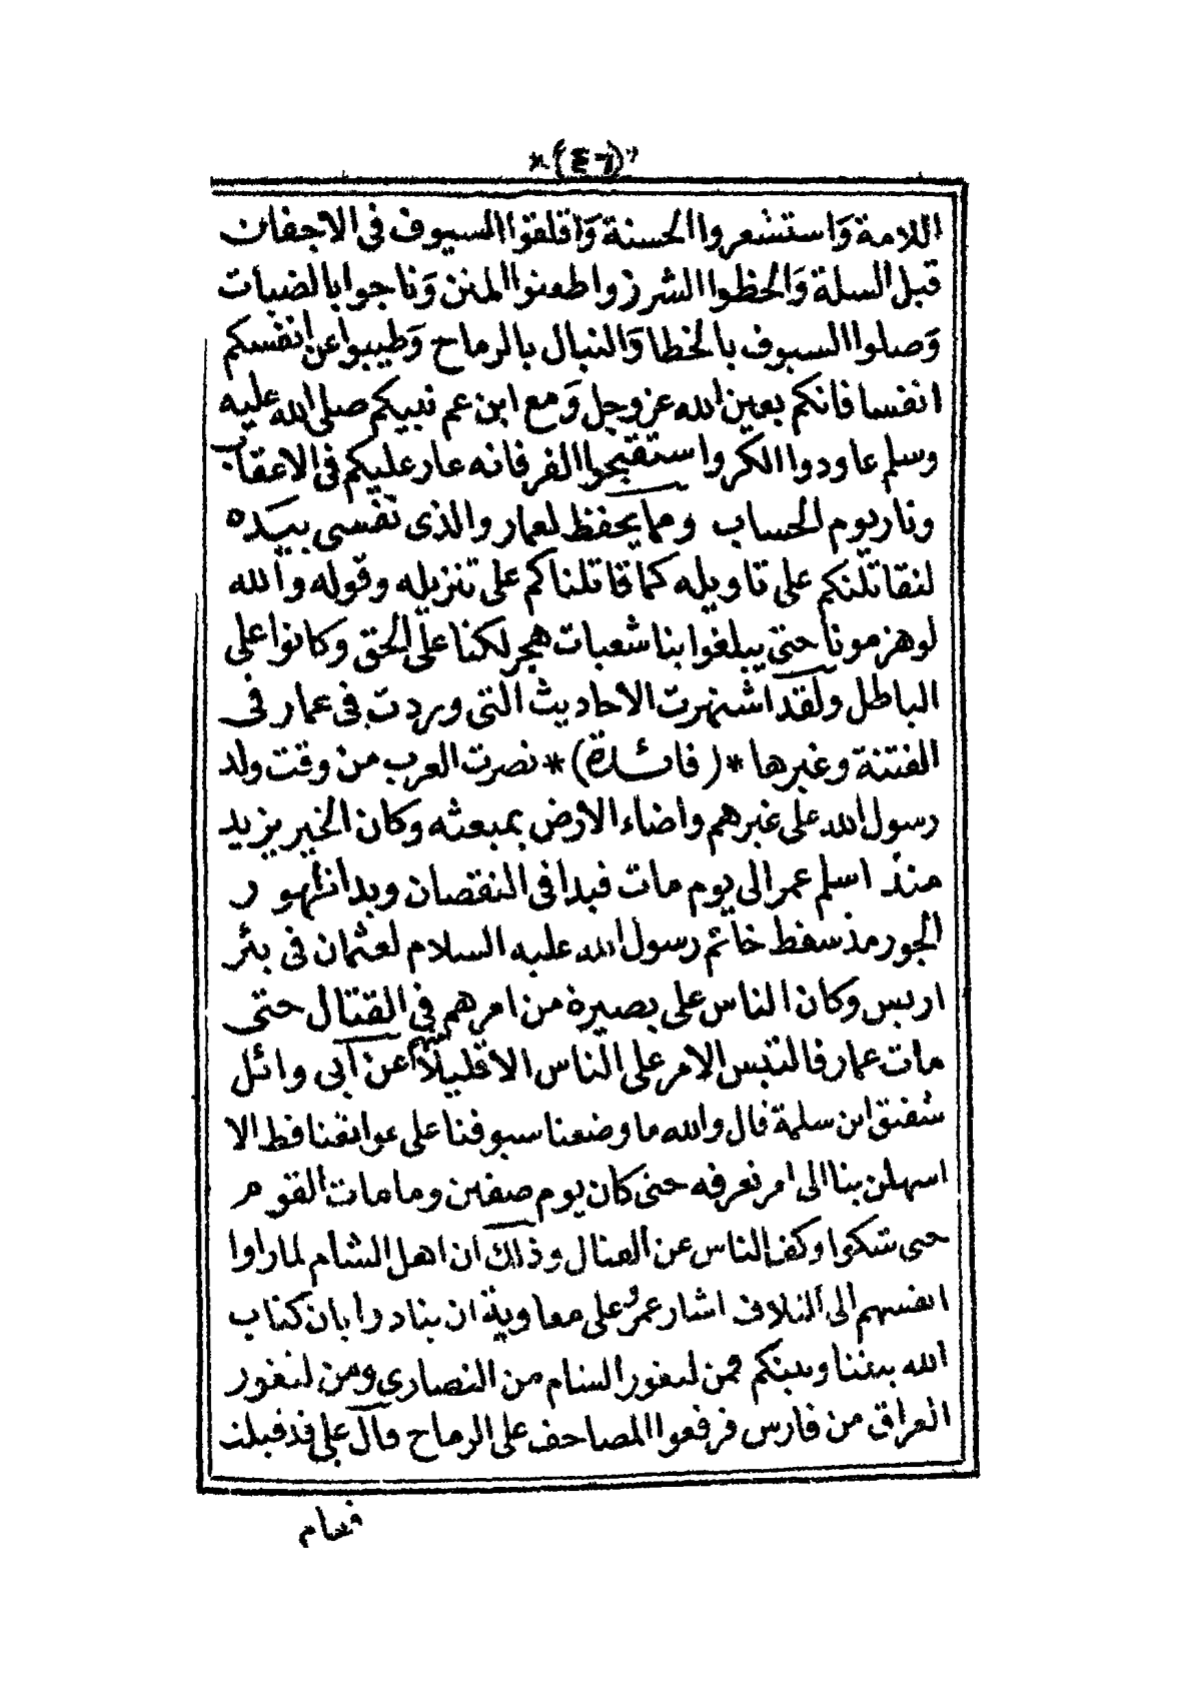 *(٤٦)*
اللامة وَاستشعروا الحسنة وَاقلقوا السيوف فى الاجفان
قبل السلة وَالحظوا الشرز واطعنوا المنن وَناجوا بالضبات
وَصلوا السيوف بالخطا وَالنبال بالرماح وَطيبوا عن انفسكم
انفسا فانكم بعين الله عز وجل وَمع ابن عم نبيكم صلى الله عليه
وسلم عاودوا الكر واستقبحوا الفر فانه عار عليكم فى الاعقاب
ونار يوم الحساب ومما يحفظ لعمار والذى نفسى بيده
لنقاتلنكم على تاويله كما قاتلناكم على تنزيله وقوله والله
لو هزمونا حتى يبلغوا بنا شعبات هجر لكنا على الحق وكانوا على
الباطل ولقد اشتهرت الاحاديث التى وردت فى عمار فى
الفتنة وغيرها *(فائدة)* نصرت العرب من وقت ولد
رسول الله على غيرهم واضاء الارض بمبعثه وكان الخير يزيد
منذ اسلم عمر الى يوم مات فبدا فى النقصان وبدا ظهور
الجور مذ سقط خاتم رسول الله عليه السلام لعثمان فى بئر
اريس وكان الناس على بصيرة من امرهم فى القتال حتى
مات عمار فالتبس الامر على الناس الا قليلا منهم عن ابى وائل
شفيق ابن سلمة قال والله ما وضعنا سيوفنا على عواتقنا قط الا
اسهلن بنا الى امر نعرفه حتى كان يوم صفين وما مات القوم
حتى شكوا وكف الناس عن القتال وذلك ان اهل الشام لما راوا
انفسهم الى التلاف اشار عمرو على معاوية ان ينادوا بان كتاب
الله بيننا وبينكم فمن لثغور الشام من النصارى ومن لثغور
العراق من فارس فرفعوا المصاحف على الرماح قال على قد قبلت
فقام